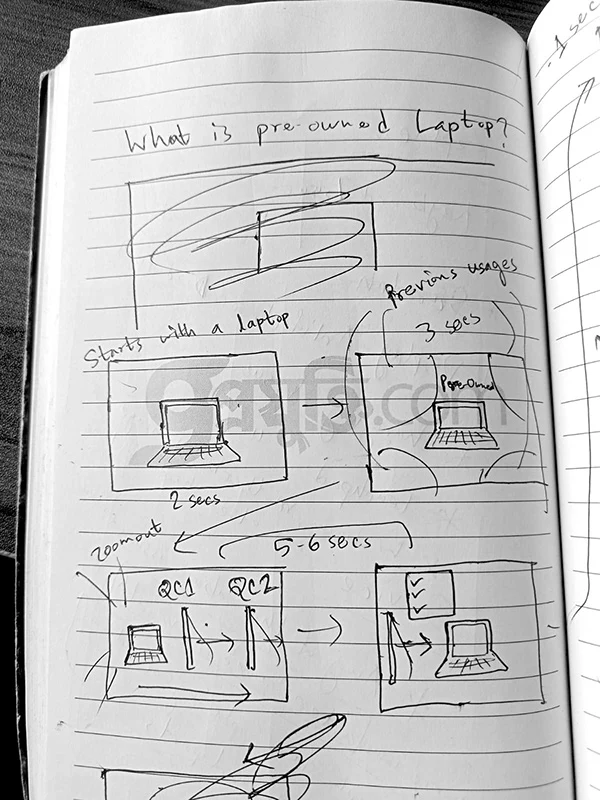 What is pre-owned Laptop?
Previous usages
Starts with a laptop
3 secs
Pre-owned
2 secs
zoomout
5-6 secs
QC1 QC2
.1 sec